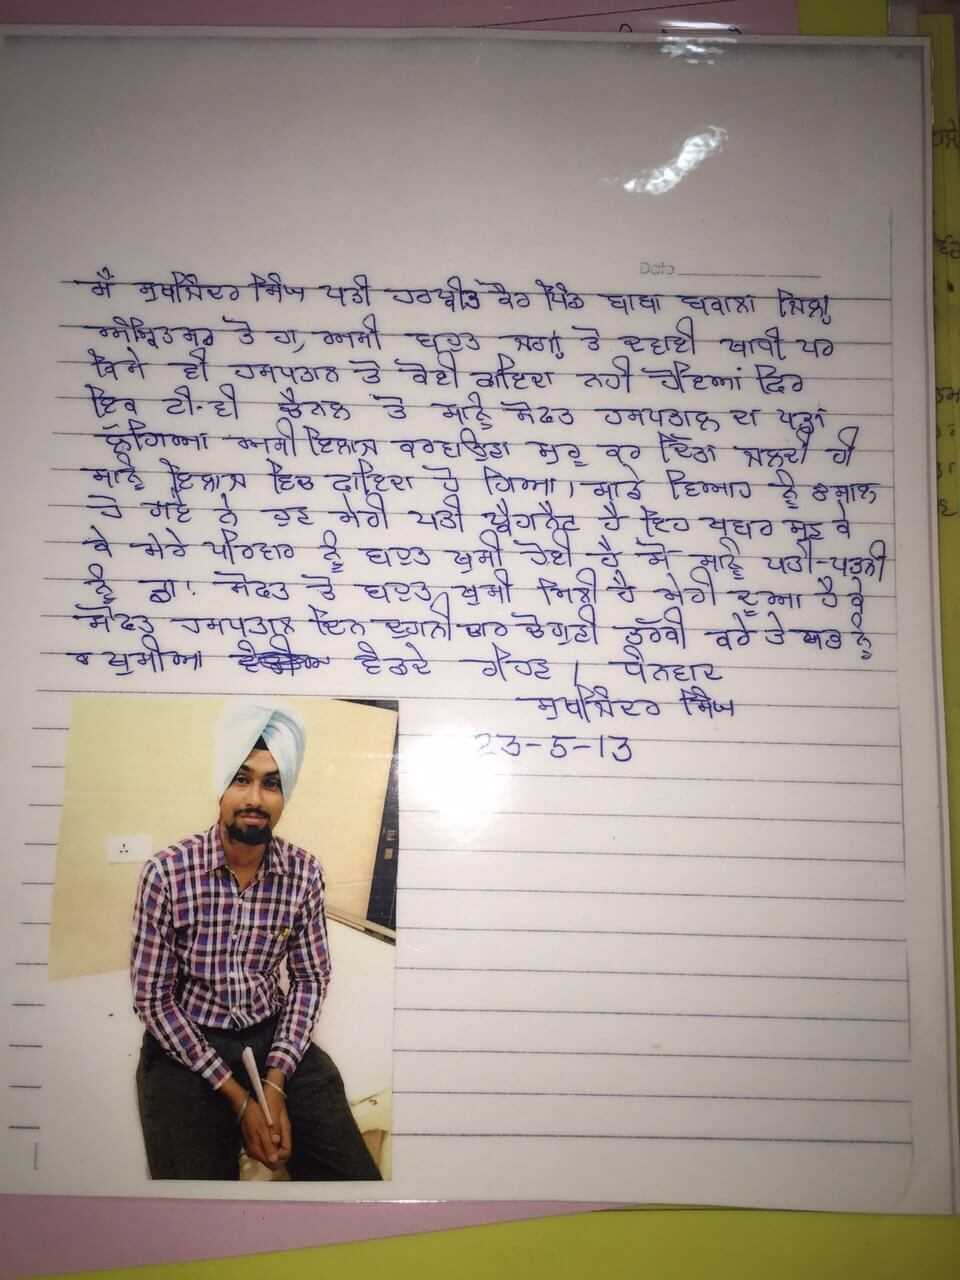 Date
ਮੈਂ ਸੁਖਜਿੰਦਰ ਸਿੰਘ ਪਤੀ ਹਰਪ੍ਰੀਤ ਕੌਰ ਪਿੰਡ ਬਾਬਾ ਬਕਾਲਾ ਜਿਲਾ
ਅੰਮ੍ਰਿਤਸਰ ਤੋ ਹਾ, ਅਸੀ ਬਹੁਤ ਜਗਾ ਤੋ ਦਵਾਈ ਖਾਦੀ ਪਰ
ਕਿਸੇ ਵੀ ਹਸਪਤਾਲ ਤੋ ਕੋਈ ਫਾਇਦਾ ਨਹੀ ਹੋਇਆ ਫਿਰ
ਇਕ ਟੀ.ਵੀ ਚੈਨਲ ਤੋ ਸਾਨੂੰ ਹਸਪਤਾਲ ਦਾ ਪਤਾ
ਲੱਗਿਆ ਅਸੀ ਇਲਾਜ ਕਰਵਾਉਣਾ ਸੁਰੂ ਕਰ ਦਿੱਤਾ ਜਲਦੀ ਹੀ
ਸਾਨੂੰ ਇਲਾਜ ਵਿਚ ਫਾਇਦਾ ਹੋ ਗਿਆ। ਸਾਡੇ ਵਿਆਹ ਨੂੰ ਸਾਲ
ਹੋ ਗਏ ਨੇ ਹੁਣ ਮੇਰੀ ਪਤਨੀ ਪ੍ਰੈਗਨੈਂਟ ਹੈ ਇਹ ਖਬਰ ਸੁਣ ਕੇ
ਕੇ ਮੇਰੇ ਪਰਿਵਾਰ ਨੂੰ ਬਹੁਤ ਖੁਸੀ ਹੋਈ ਹੈ ਸਾਨੂੰ ਪਤੀ-ਪਤਨੀ
ਨੂੰ ਡਾ. ਤੋ ਬਹੁਤ ਖੁਸੀ ਮਿਲੀ ਹੈ ਮੇਰੀ ਦੂਆ ਹੈ ਕੇ
ਹਸਪਤਾਲ ਦਿਨ ਦੁਗਨੀ ਰਾਤ ਚੋਗੁਣੀ ਤਰੱਕੀ ਕਰੇ ਤੇ ਸਭ ਨੂੰ
ਖੁਸੀਆ ਵੰਡਦੇ ਰਹਿਣ। ਧੰਨਵਾਦ
ਸੁਖਜਿੰਦਰ ਸਿੰਘ
23-5-13